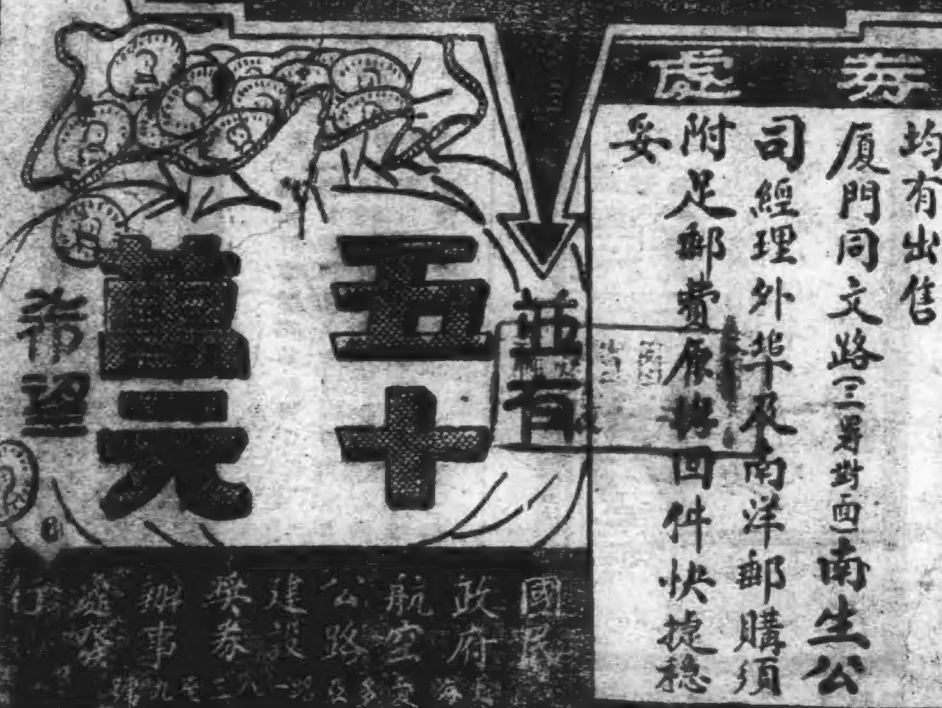 券處
均有出售
厦門同文路(三對面)南生公
司經理外埠及南洋郵購須
附足郵費原回件快捷穩
妥
並有
五十
萬元
希望
國民
政府
航空
公路
建設
獎券
辦事
處發
行